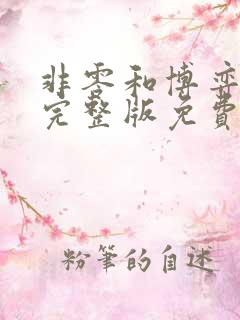 非零和博弈
完整版免费
粉筆的自述